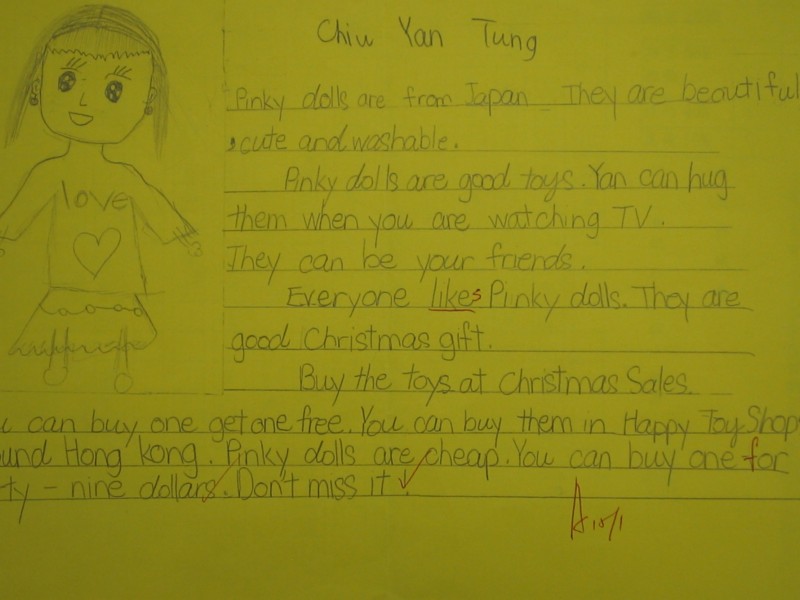 Chiu Yan Tung
love
Pinky dolls are from Japan. They are beautiful
, cute and washable.
Pinky dolls are good toys. Yan can hug
them when you are watching TV.
They can be your friends.
Everyone likes Pinky dolls. They are
good Christmas gift.
Buy the toys at Christmas Sales.
can buy one get one free. You can buy them in Happy Toy Shop
Hong Kong. Pinky dolls are cheap. You can buy one for
- nine dollars. Don't miss it.
A 10/1